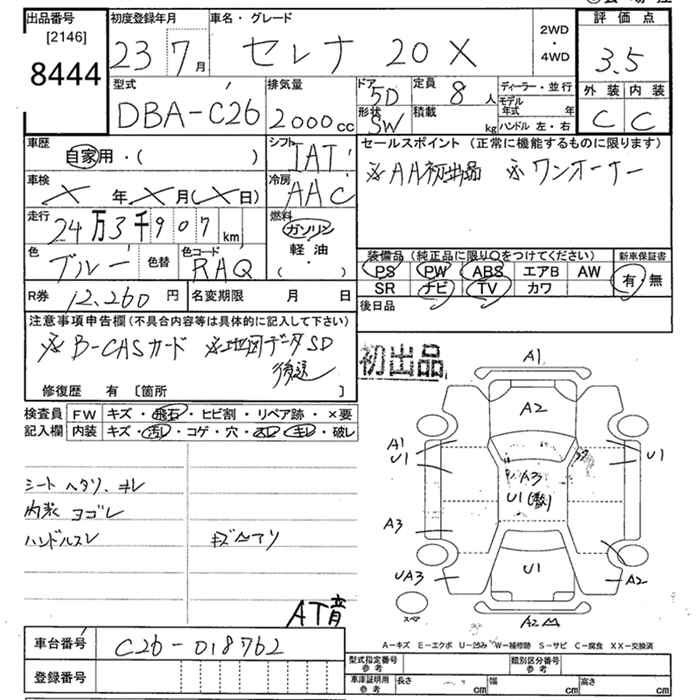 出品番号
[2146]
8444
初度登録年月
23 7月
車名・グレード
セレナ 20X
2WD
・
4WD
評価点
3.5
外装 内装
C C
型式
DBA-C26
排気量
2000cc
ドア
5D
形状
SW
定員
8人
積載
kg
ディーラー・並行
モデル
年式 年
ハンドル 左・右
車歴
自家用・( )
シフト
IAT
セールスポイント (正常に機能するものに限ります)
※AA初出品 ※ワンオーナー
車検
X年X月(X日)
冷房
AAC
走行
24万3千907km
燃料
ガソリン
軽油
( ・ )
色
ブルー
色替
色コード
RAQ
装備品(純正品に限り○をつけてください)
PS PW ABS エアB AW
SR ナビ TV カワ
新車保証書
有・無
R券 12,260円
名変期限 月 日
後日品
注意事項申告欄(不具合内容等は具体的に記入して下さい)
※B-CASカード ※地図データSD
後送
修復歴 有 [箇所 ]
初出品
検査員
記入欄
FW キズ・飛石・ヒビ割・リペア跡・×要
内装 キズ・汚レ・コゲ・穴・スレ・キレ・破レ
シートヘタリ、キレ
内装ヨゴレ
ハンドルスレ
AT音
A1
A2
A1
U1
U1
A3
U1(散)
A3
UA3
U1
A2
A2
スペア
A-キズ E-エクボ U-凹み W-補修跡 S-サビ C-腐食 XX-交換済
車台番号 C26-018762
登録番号
型式指定番号
参考
類別区分番号
参考
車庫証明用
参考
長さ cm 幅 cm 高さ cm